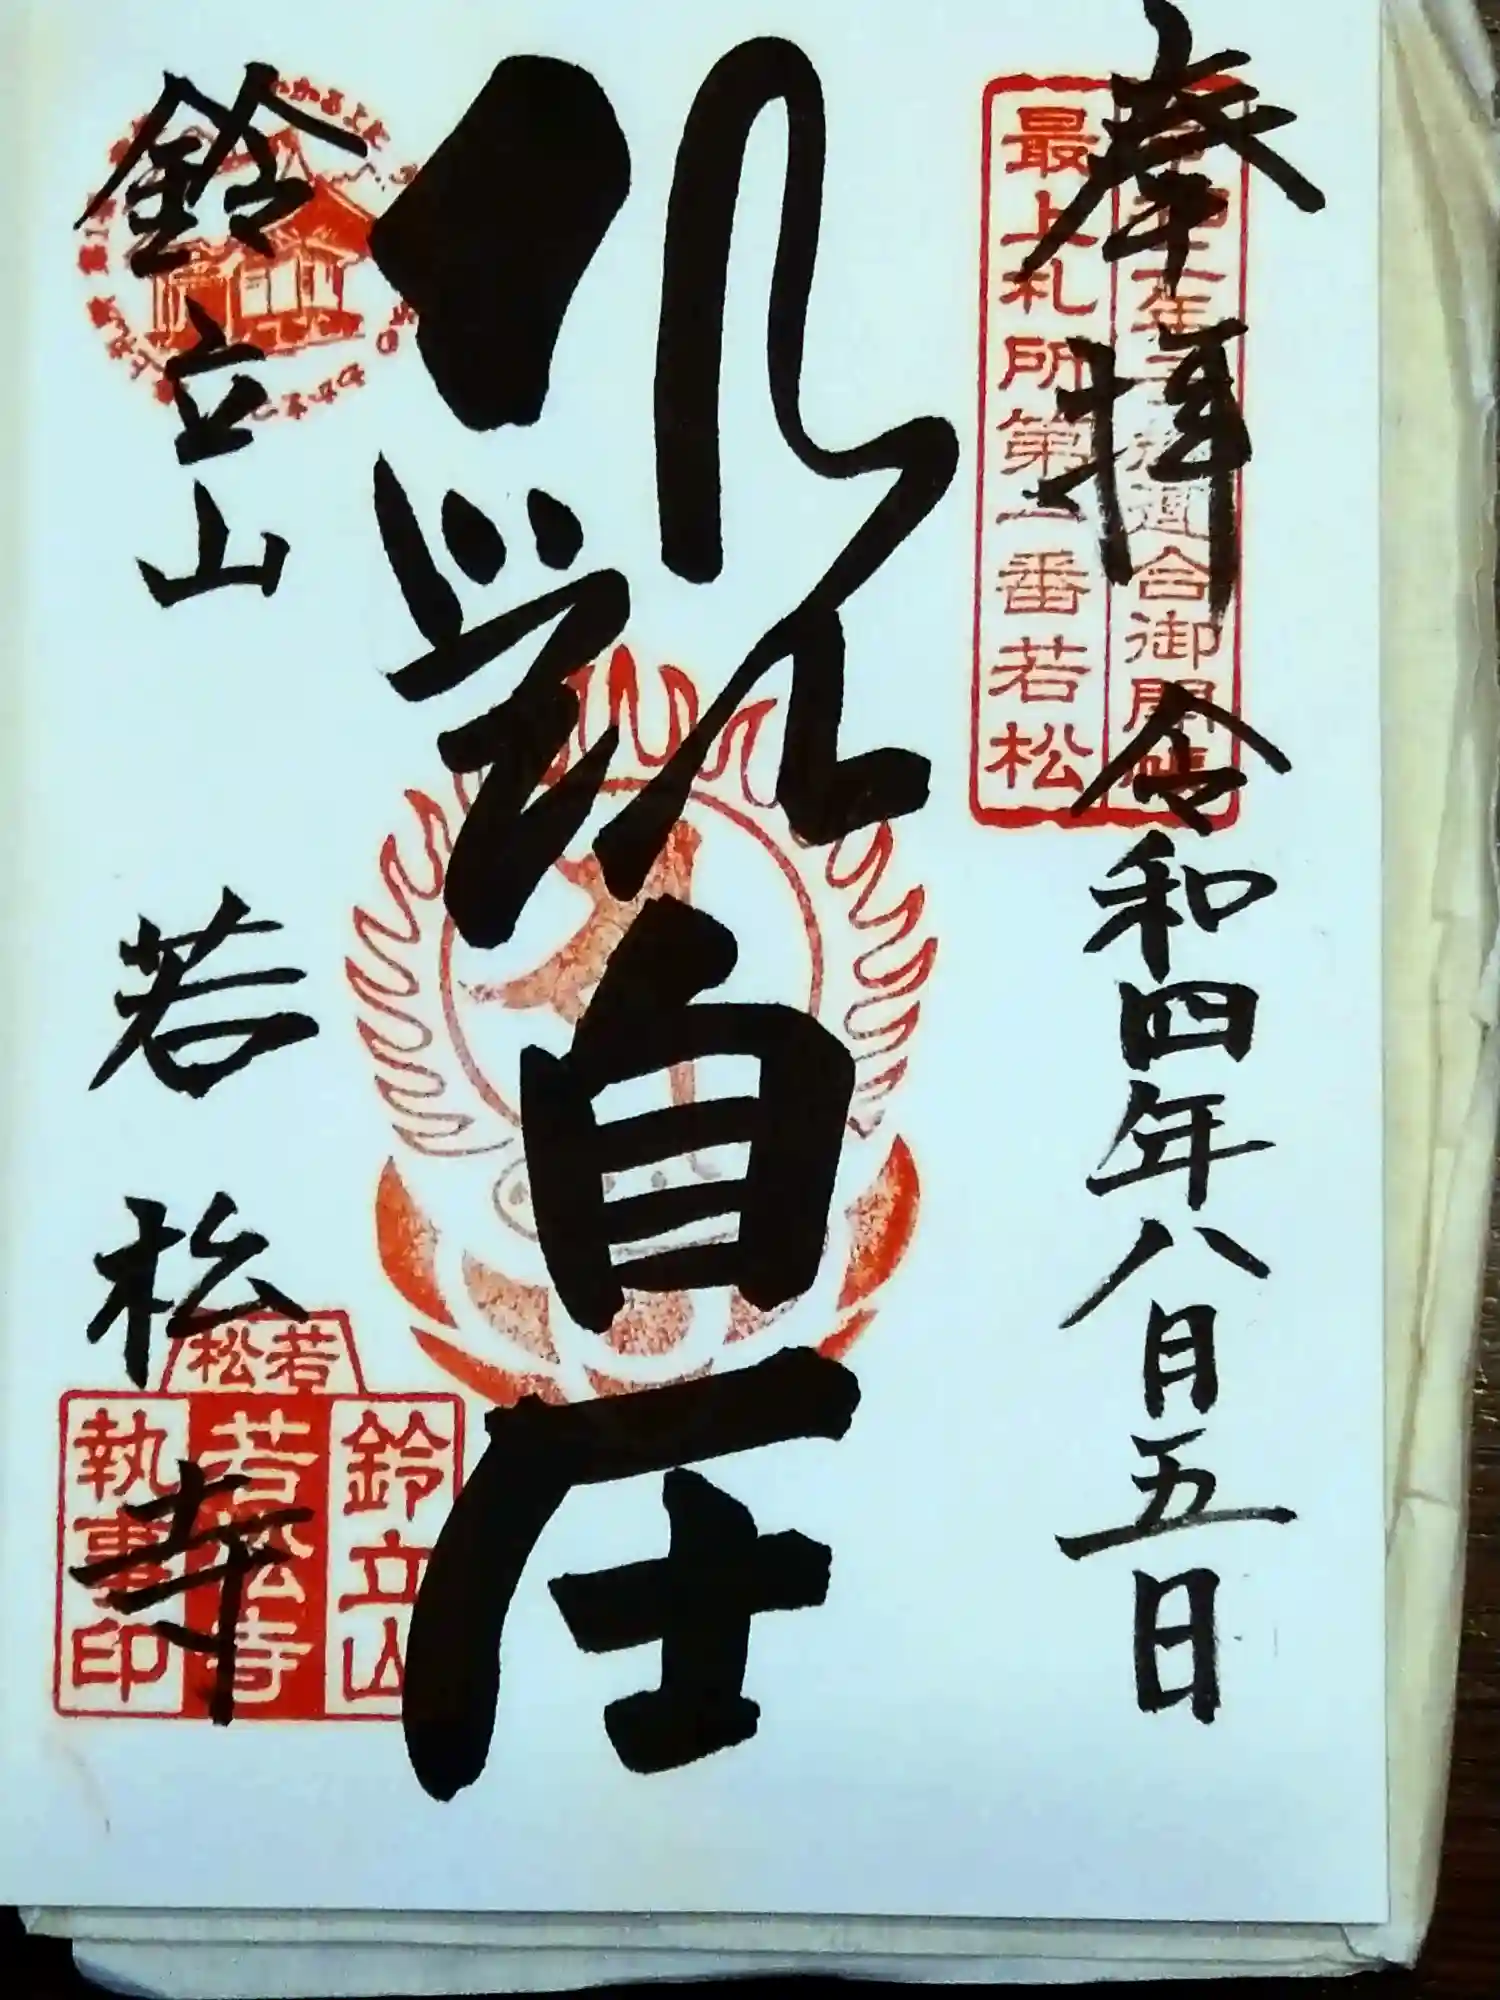 奉拝 令和四年八月五日
最上札所第一番若松
観自在
鈴立山 若松寺
若松
鈴立山
若松寺
執事印